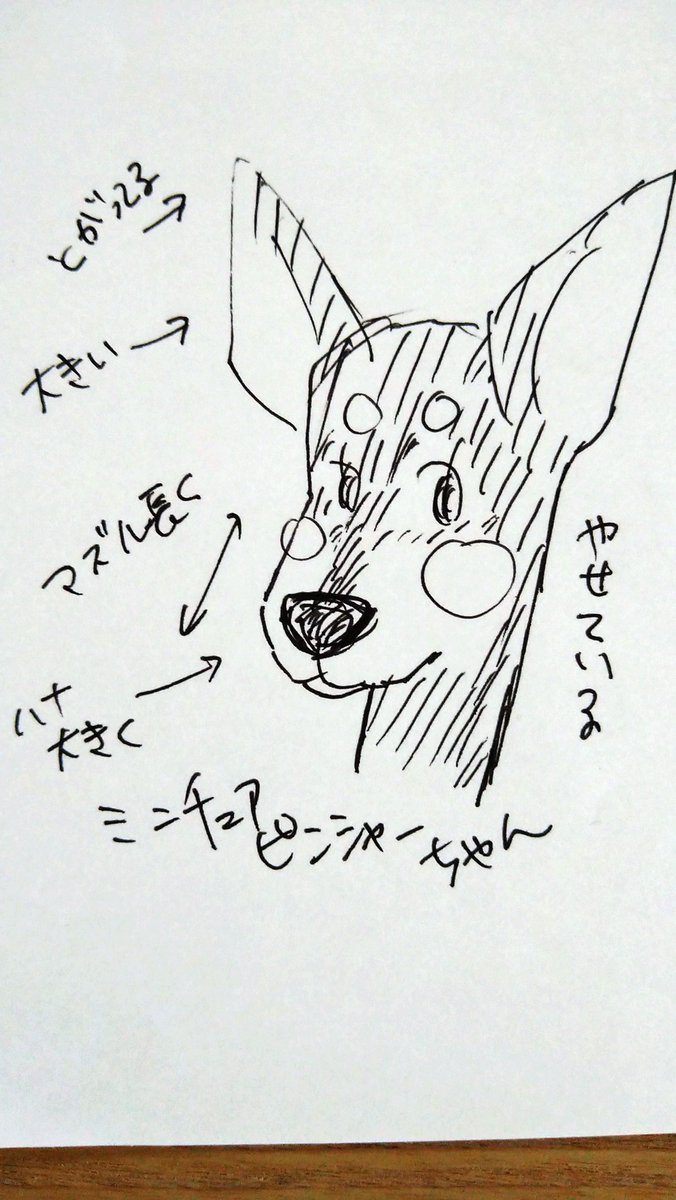 とがってる
大きい
マズル長く
ハナ
大きく
やせている
ミニチュア
ピンシャー
ちゃん